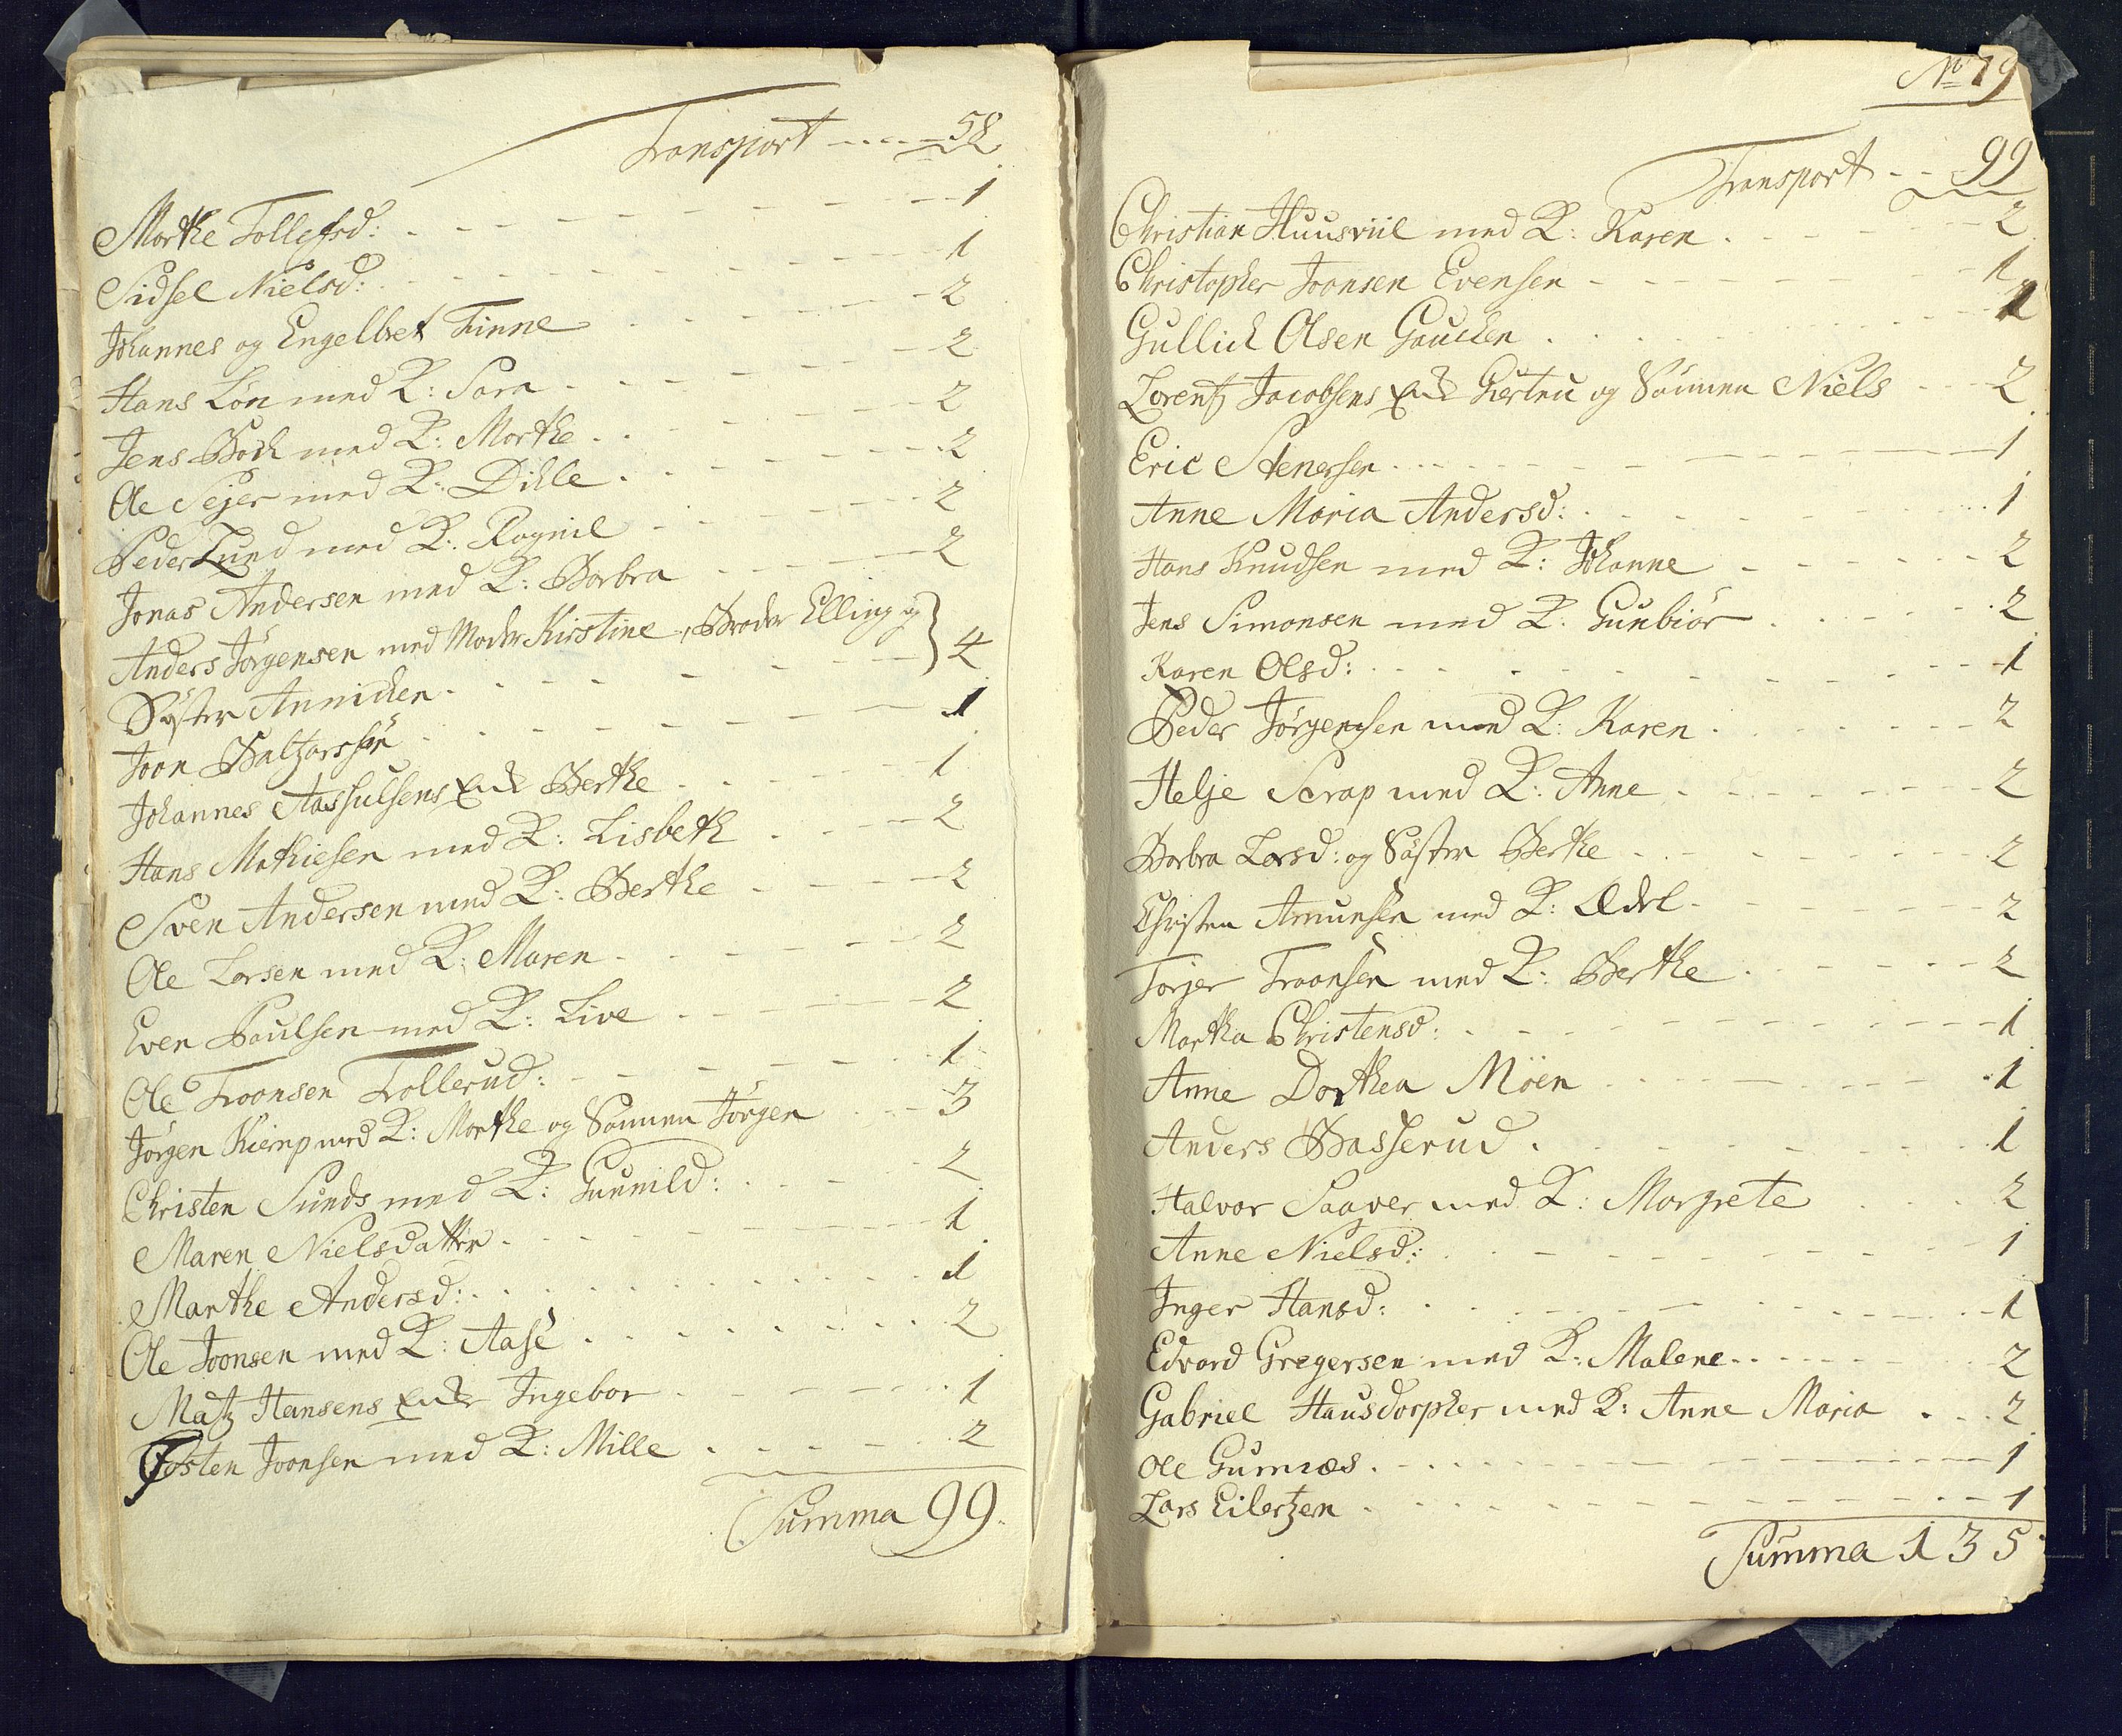 Transport - - - - 58
Marthe Tollefsd: - - - 1
Sidsel Nielsd: - - - 1
Johannes og Engelbret Finne - - - 2
Hans Lön med K: Sara - - - 2
Jens Bock med K: Marthe - - - 2
Ole Sejer med K: Dille - - - 2
Peder Lund med K: Ragnil - - - 2
Jonas Andersen med K: Barbra - - - 2
Anders Jörgensen med Moder Kirstine, Broder Elling og } 4
Söster Annicken - - -
Joon Baltzarssön - - - 1
Johannes Aassulsens Enke Berthe - - - 1
Hans Mathiesen med K: Lisbeth - - - 2
Sven Andersen med K: Berthe - - - 2
Ole Larsen med K: Maren - - - 2
Even Paulsen med K: Live - - - 2
Ole Troonsen Tollerud: - - - 1
Jörgen Kiemp med K: Marthe og Sönnen Jörgen - - - 3
Christen Sunds med K: Gunnild: - - - 2
Maren Nielsdatter - - - 1
Marthe Andersd: - - - 1
Ole Joonsen med K: Aase - - - 2
Matz Hansens Enke Ingebor - - - 1
Tosten Joonsen med K: Mille - - - 2
Summa 99.
No 19
Transport - - 99
Christian Huusviil med K: Karen - - - 2
Christopher Joonsen Evensen - - - 1
Gullich Olsen Gaucken - - - 1
Lorentz Jacobsens Enke Giertru og Sönnen Niels - - - 2
Eric Stenersen - - - 1
Anne Maria Andersd: - - - 1
Hans Knudsen med K: Johanne - - - 2
Jens Simonsen med K: Gunbiör - - - 2
Karen Olsd: - - - 1
Peder Jörgensen med K: Karen - - - 2
Helje Scrap med K: Anne - - - 2
Barbra Larsd: og Söster Berthe - - - 2
Christen Amunsen med K: Ædel - - - 2
Torjer Troonsen med K: Berthe - - - 2
Martha Christensd: - - - 1
Anne Dorthea Möen - - - 1
Anders Basserud - - - 1
Halvor Saaver med K: Margrete - - - 2
Anne Nielsd: - - - 1
Inger Hansd: - - - 1
Edvard Gregersen med K: Malene - - - 2
Gabriel Hausdorpher med K: Anne Maria - - - 2
Ole Gurnæs - - - 1
Lars Eilertzen - - - 1
Summa 135